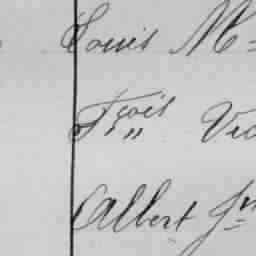 Louis M
Fçois Vic
Albert J